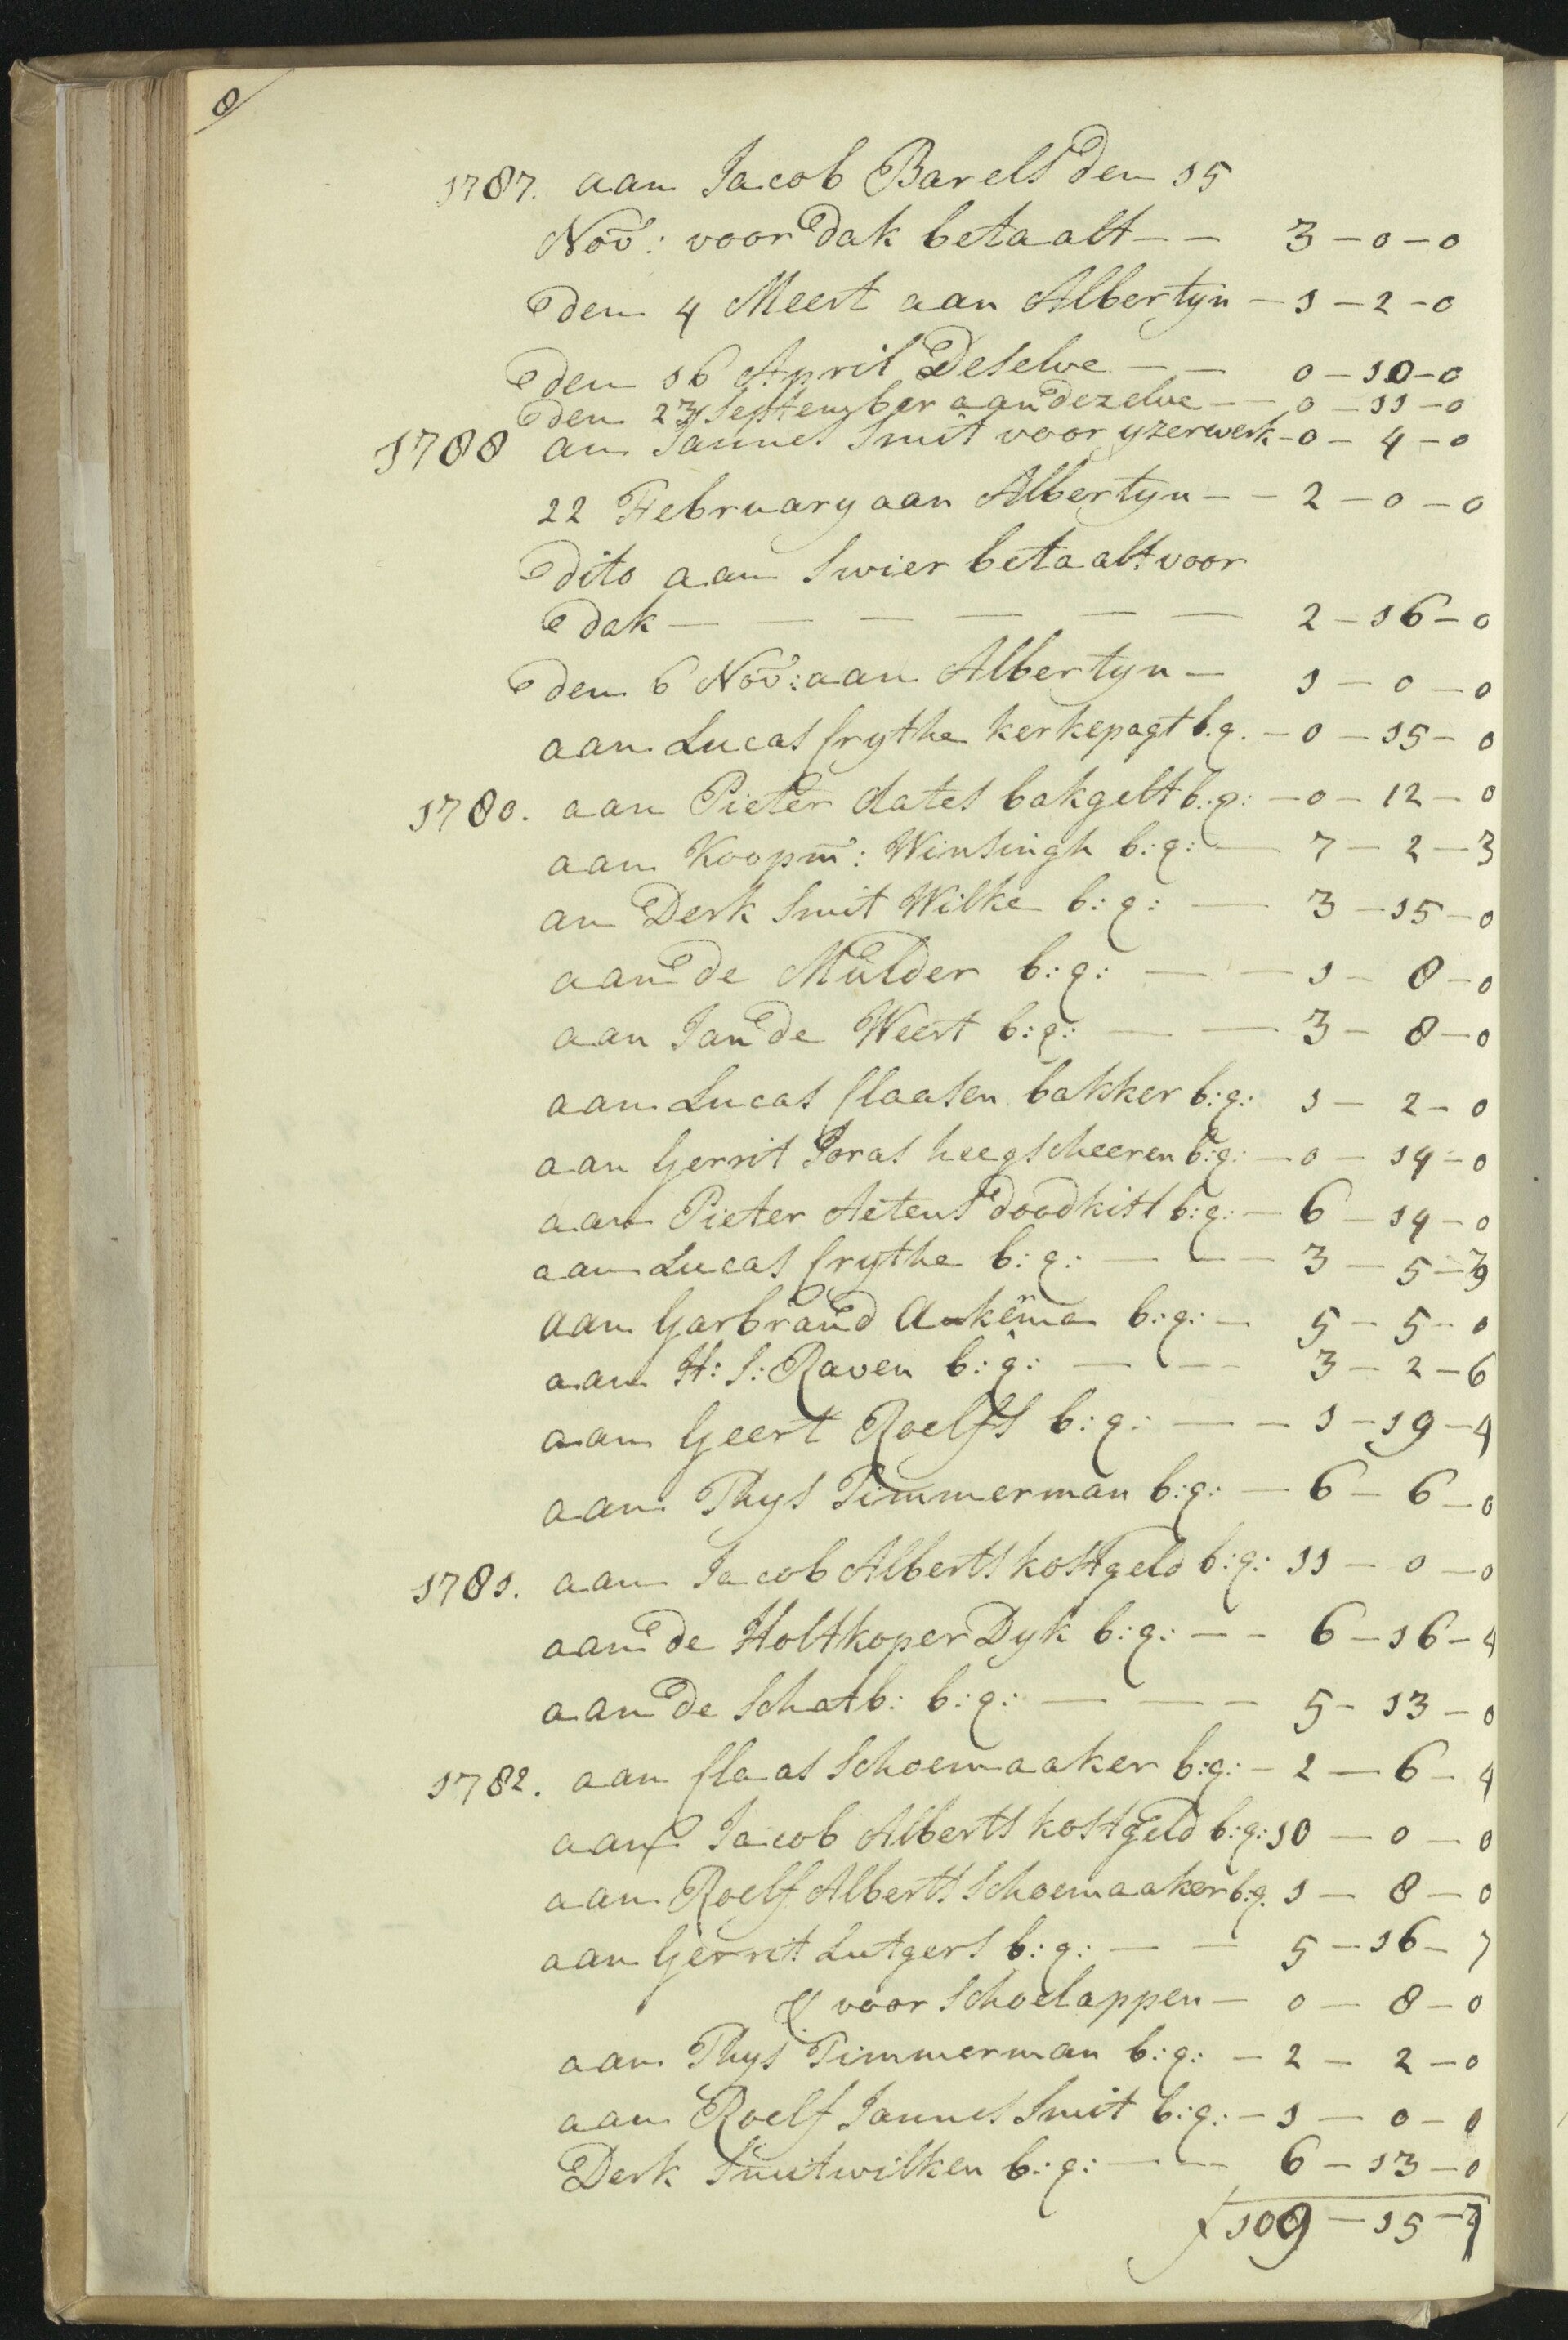 8
1787. aan Jacob Barels den 15
Nov: voor dak betaalt — — 3 — 0 — 0
den 4 Meert aan Albertyn — 1 — 2 — 0
den 16 April Deselve — — 0 — 10 — 0
den 23 September aan dezelve — — 0 — 11 — 0
1788 an Jannes Smit voor yzerwerk — 0 — 4 — 0
22 February aan Albertyn — — 2 — 0 — 0
dito aan Swier betaalt voor
dak — — — — — — 2 — 16 — 0
den 6 Nov: aan Albertyn — 1 — 0 — 0
aan Lucas Crythe kerkepagt b.q. — 0 — 15 — 0
1780. aan Pieter Aates bakgelt b:q: — 0 — 12 — 0
aan Koopm: Winsingh b:q: — 7 — 2 — 3
an Derk Smit Wilke b:q: — 3 — 15 — 0
aan de Mulder b:q: — — 1 — 8 — 0
aan Jan de Weert b:q: — — 3 — 8 — 0
aan Lucas Claasen bakker b:q: 1 — 2 — 0
aan Gerrit Joras heegscheeren b:q: — 0 — 14 — 0
aan Pieter Aetens doodkist b:q: — 6 — 14 — 0
aan Lucas Crythe b:q: — — — 3 — 5 —
aan Garbrand Ankema b:q: — 5 — 5 — 0
aan H: S: Raven b:q: — — — 3 — 2 — 6
aan Geert Roelfs b:q: — — 1 — 19 — 4
aan Thys Timmerman b:q: — 6 — 6 — 0
1781. aan Jacob Alberts kostgeld b:q: 11 — 0 — 0
aan de Holtkoper Dyk b:q: — — 6 — 16 — 4
aan de Schatb: b:q: — — — 5 — 13 — 0
1782. aan Claas Schoemaaker b:q: — 2 — 6 — 4
aan Jacob Alberts kostgeld b:q: 10 — 0 — 0
aan Roelf Alberts Schoemaaker b:q. 1 — 8 — 0
aan Gerrit Lutgers b:q: — — 5 — 16 — 7
& voor Schoelappen — 0 — 8 — 0
aan Thys Timmerman b:q: — 2 — 2 — 0
aan Roelf Jannes Smit b:q: — 1 — 0 — 0
Derk Smitwilken b:q: — — 6 — 13 — 0
f 109 — 15 — 7